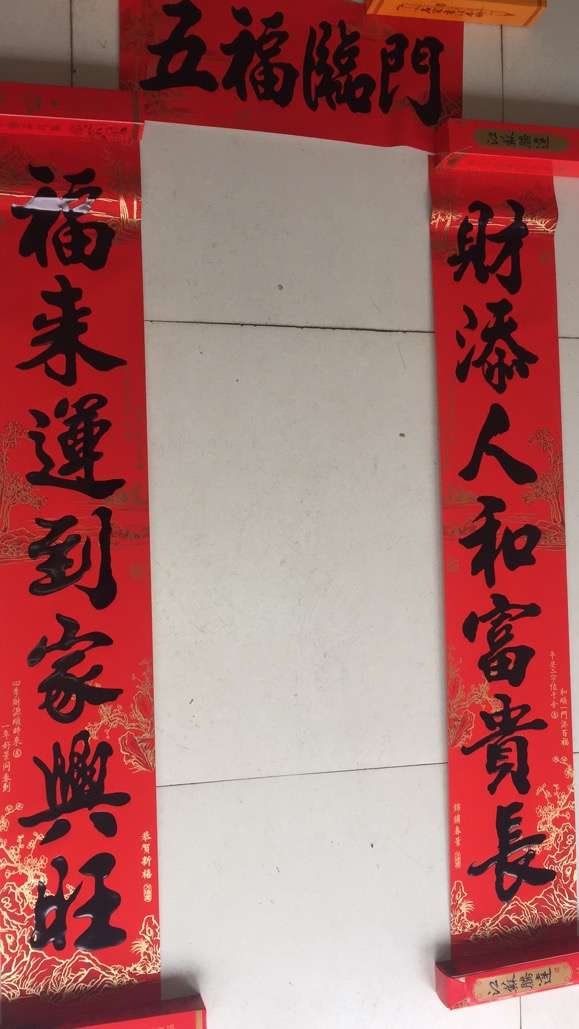 五福臨門
財添人和富貴長
福来運到家興旺
和順一門添百福
平安二字值千金
錦繡春景
四季財源順時來
一年好景同春到
恭賀新禧
江蘇騰達
江蘇騰達